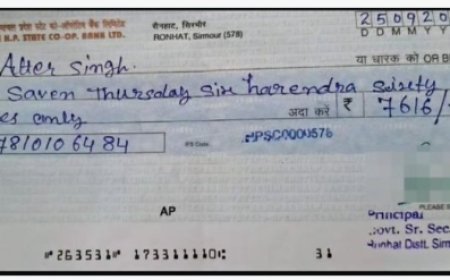 प्रदेश स्टेट को-ऑपरेटिव बैंक लिमिटेड
H.P. STATE CO-OP. BANK LTD.
रोनहाट, सिरमौर
RONHAT, Sirmour (578)
2 5 0 9 2 0
D D M M Y Y
Atter Singh
या धारक को OR BE
Saven Thursday Six harendra Sixety
es only
अदा करें ₹ 7616/-
78101064 84
IFS Code
HPSC0000578
PLEASE S
AP
Principal
Govt. Sr. Sec
Ronhat Distt. Sirm
⑈263531⑈ 173311110⑆ 31